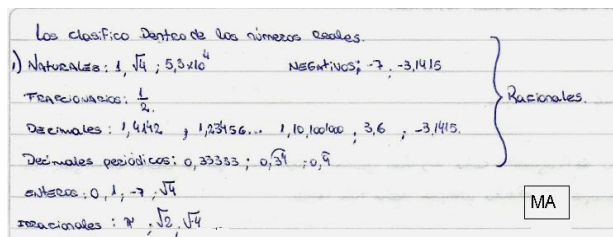 Los clasifico Dentro de los números Reales.
1) NATURALES: 1, √4 ; 5,3x10⁴ NEGATIVOS; -7 ; -3,1415
FRACCIONARIOS: 1/2
Decimales: 1,4142 , 1,23456... 1,10,100100 , 3,6 , -3,1415.
Decimales periódicos: 0,33333 ; 0,34 ; 0,9
Racionales.
ENTEROS: 0, 1, -7, √4
IRRACIONALES: π , √2, √-4
MA